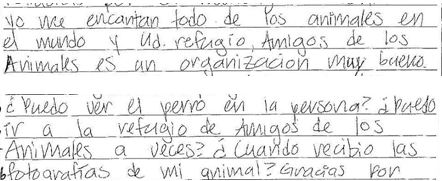 yo me encantan todo de los animales en
el mundo y Ud. refugio, Amigos de los
Animales es un organización muy bueno.
¿Puedo ver el perro en la persona? ¿Puedo
ir a la refugio de Amigos de los
Animales a veces? ¿Cuando recibio las
fotografías de mi animal? Gracias por